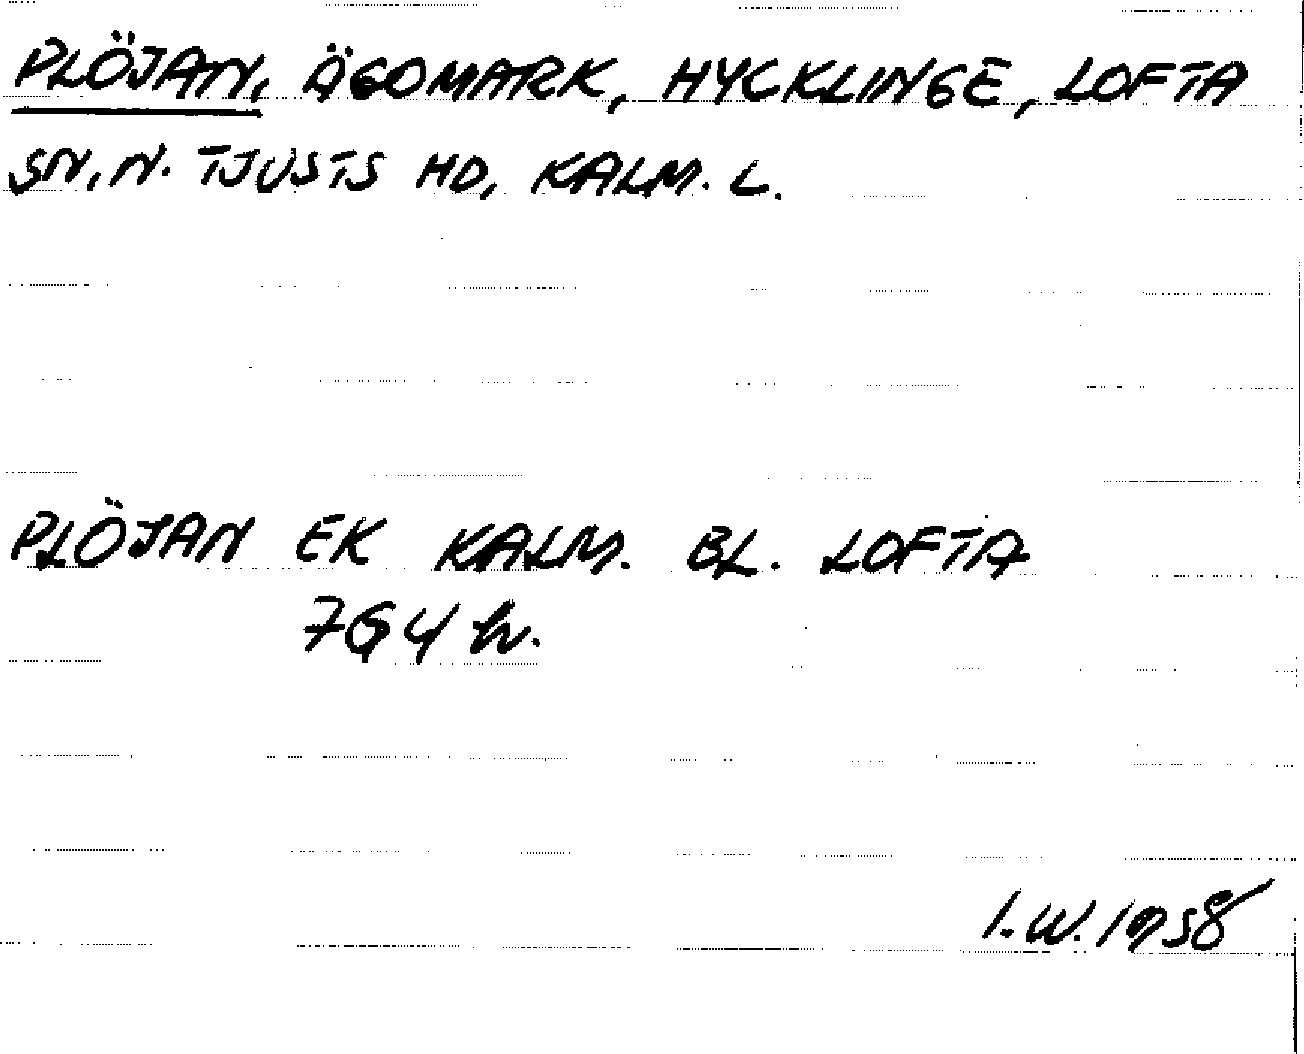 PLÖJAN, ÄGOMARK, HYCKLINGE, LOFTA
SN, N. TJUSTS HD, KALM. L.
PLÖJAN EK KALM. BL. LOFTA
764 h.
I.W. 1958